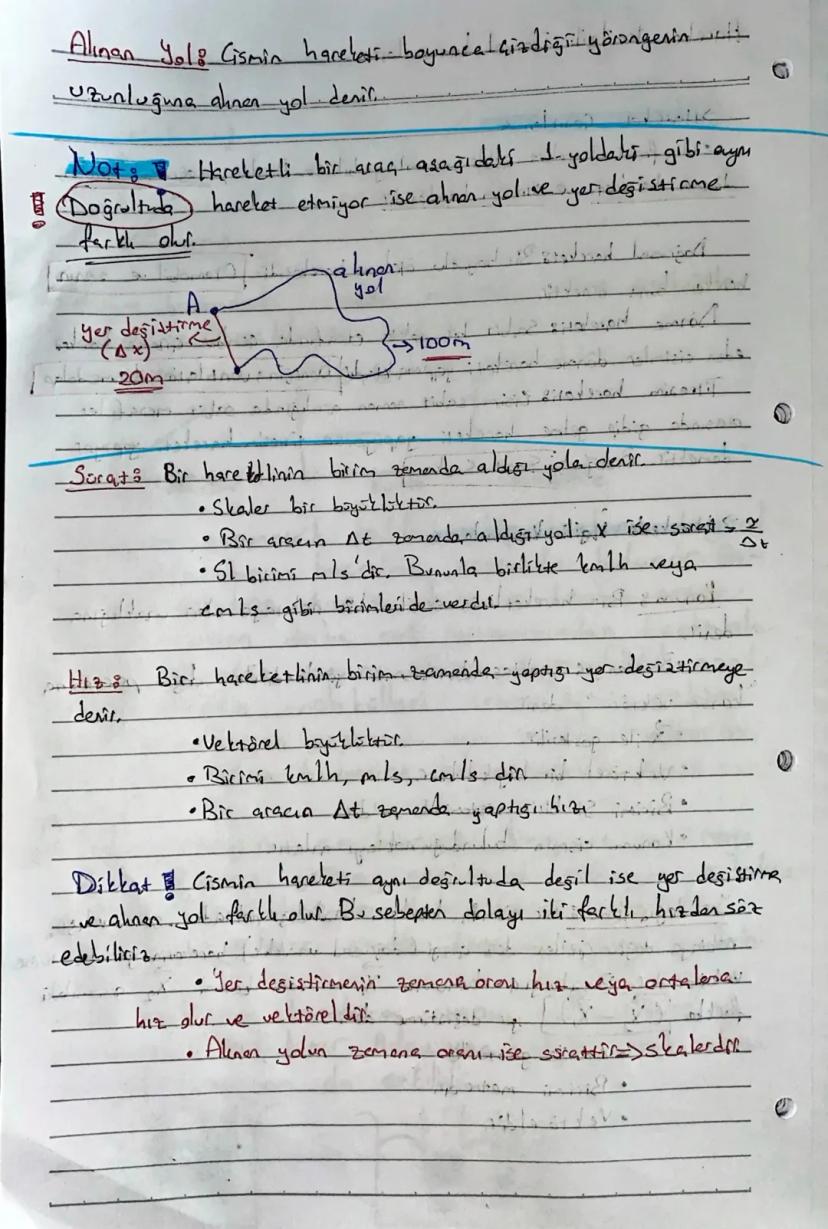 Alınan Yol: Cismin hareketi boyunca çizdiği yörüngenin
uzunluğuna alınan yol denir.
Not: Hareketli bir araç aşağıdaki 1 yoldaki gibi aynı
! Doğrultuda hareket etmiyor ise alınan yol ve yer değiştirme
farklı olur.
alınan
yol
A
yer değiştirme
(Δx)
→ 100m
20m
Sürat: Bir hareketlinin birim zamanda aldığı yola denir.
• Skaler bir büyüklüktür.
• Bir aracın Δt zamanda aldığı yol = x ise sürat = x/Δt
• SI birimi m/s'dir. Bununla birlikte km/h veya
cm/s gibi birimleri de vardır.
Hız: Bir hareketlinin birim zamanda yaptığı yer değiştirmeye
denir.
• Vektörel büyüklüktür.
• Birimi km/h, m/s, cm/s dir.
• Bir aracın Δt zamanda yaptığı hızı
Dikkat ! Cismin hareketi aynı doğrultuda değil ise yer değiştirme
ve alınan yol farklı olur. Bu sebepten dolayı iki farklı hızdan söz
edebiliriz.
• Yer değiştirmenin zamana oranı hız veya ortalama
hız olur ve vektöreldir.
• Alınan yolun zamana oranı ise sürattir => skalerdir.